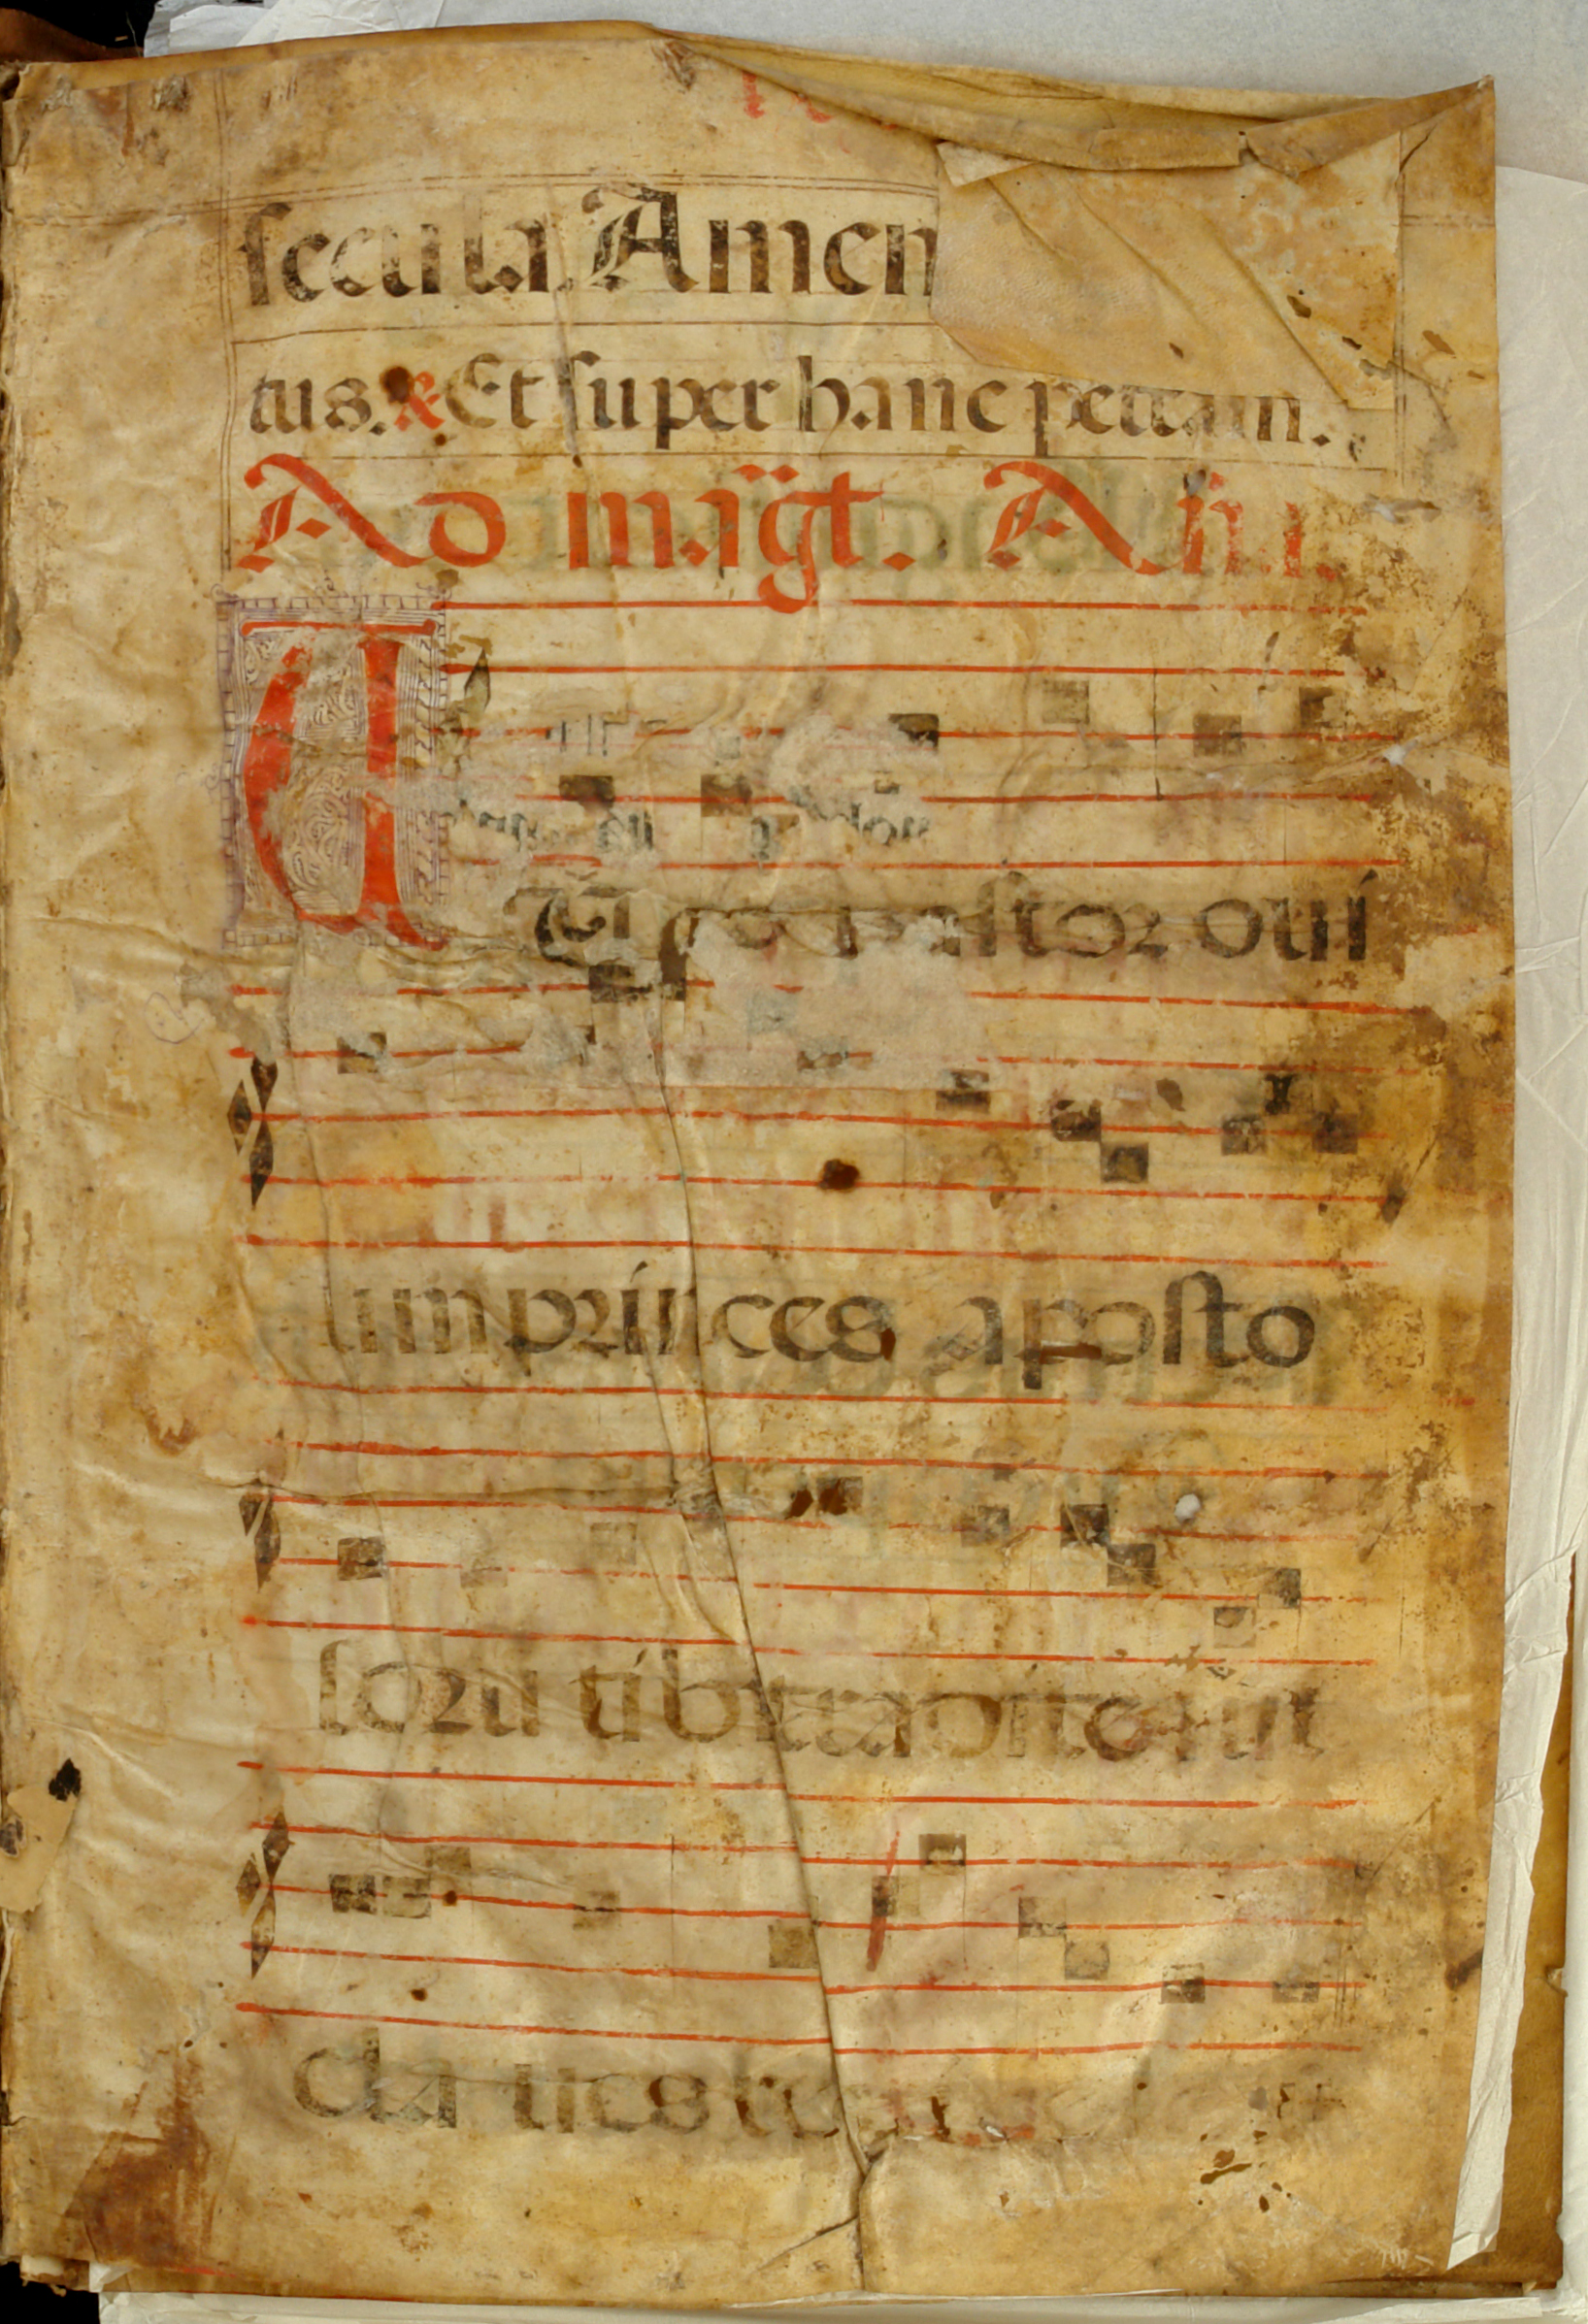 secula. Amen
tus. & Et super hanc petram.
Ad mag̈t. Aña.
Tu es pastor oui
um princeps aposto
lorū tibi traditę sūt
claues reg